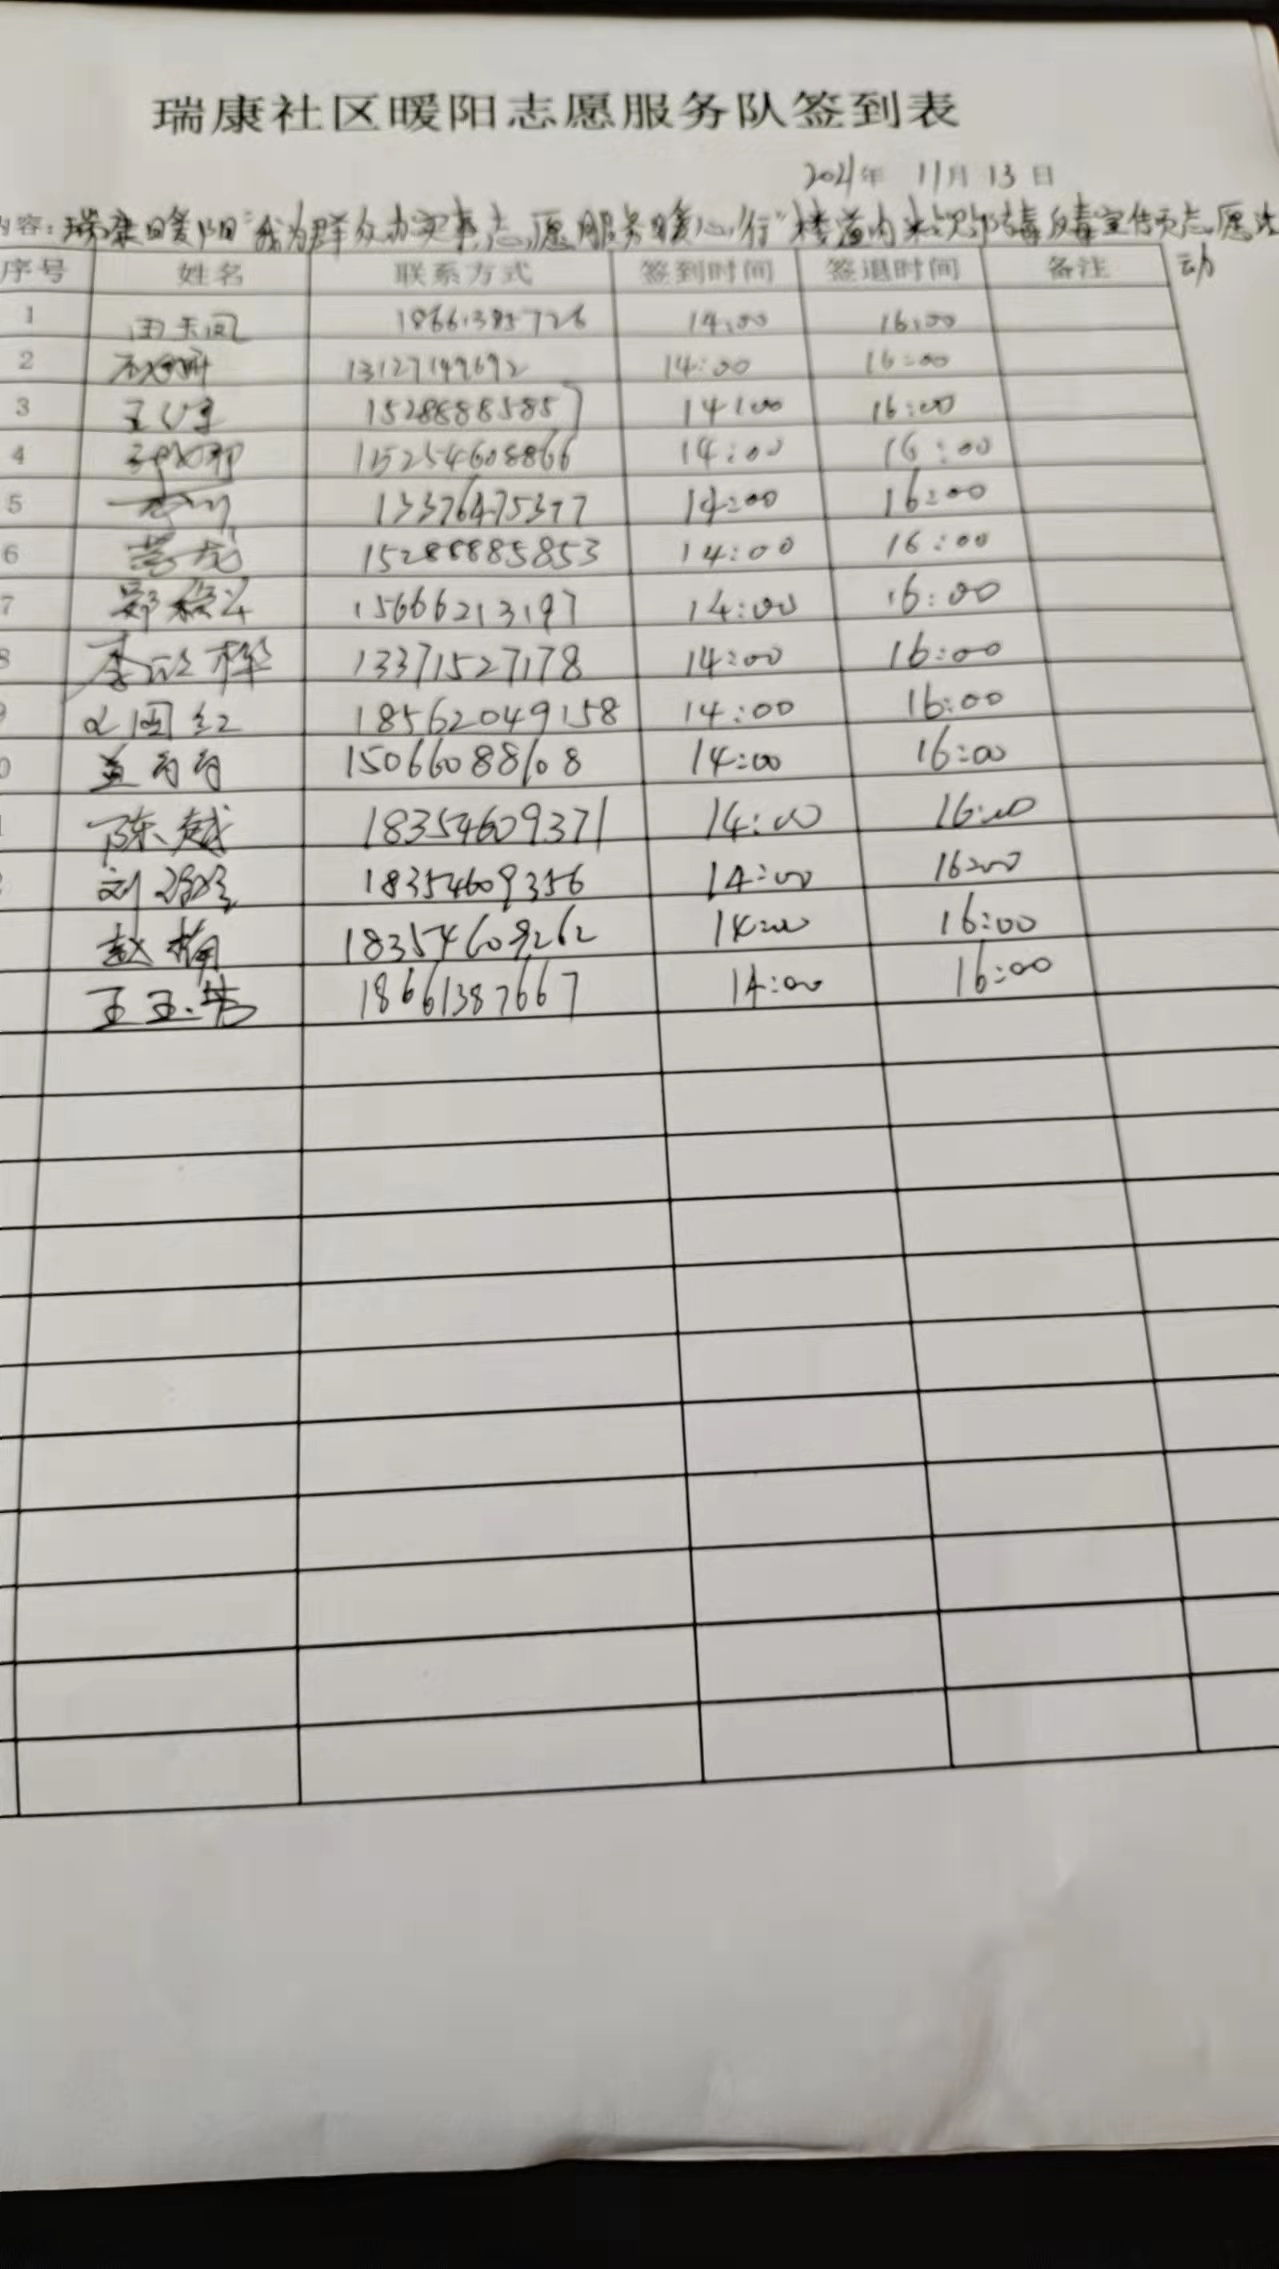 瑞康社区暖阳志愿服务队签到表
2021年 11月 13日
内容：瑞康暖阳"我为群众办实事志愿服务暖心行"楼道内张贴禁毒反毒宣传页志愿活动
序号 姓名 联系方式 签到时间 签退时间 备注
1 18661385726 14:00 16:00
2 13127149692 14:00 16:00
3 15288885857 14:00 16:00
4 15254608866 14:00 16:00
5 13376475377 14:00 16:00
6 15288885853 14:00 16:00
7 15666213197 14:00 16:00
8 李欣桦 13371527178 14:00 16:00
18562049158 14:00 16:00
15066088608 14:00 16:00
陈越 18354609371 14:00 16:00
刘 18354609356 14:00 16:00
赵楠 18354609262 14:00 16:00
王玉 18661387667 14:00 16:00